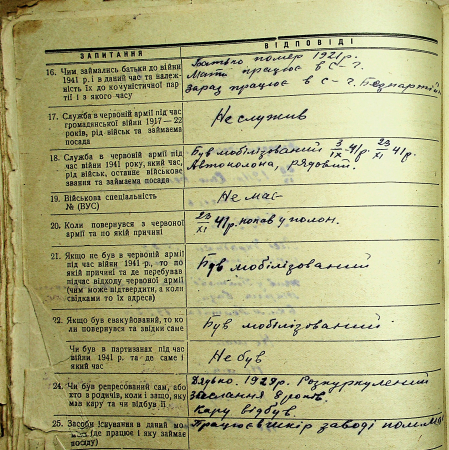 ЗАПИТАННЯ
ВІДПОВІДІ
16. Чим займались батьки до війни
1941 р. і в даний час та належ-
ність їх до комуністичної пар-
тії і з якого часу
Батько помер 1921 р.
Мати працює в с-г.
зараз працює в с-г. Безпартійн
17. Служба в червоній армії під час
громадянської війни 1917—22
років, рід військ та займаєма
посада
Не служив
18. Служба в червоній армії під
час війни 1941 року, який час,
рід військ, останнє військове
звання та займаєма посада
Був мобілізований 3/IX-41 р. 23/XI 41 р.
Автоколона, рядовий.
19. Військова спеціальність
№ (ВУС)
Не має
20. Коли повернувся з червоної
армії та по якій причині
23/XI 41 р. попав у полон.
21. Якщо не був в червоній армії
під час війни 1941 р., то по
якій причині та де перебував
підчас відходу червоної армії
(чим може підтвердити, а коли
свідками то їх адреса)
Був мобілізований
22. Якщо був евакуйований, то ко
ли повернувся та звідки саме
Був мобілізований
Чи був в партизанах під час
війни 1941 р. та де саме і
який час
Не був
24. Чи був репресований сам, або
хто з родичів, коли і защо, яку
мав кару та чи відбув її
Дядько. 1929 р. Розкуркулений
заслання 8 років.
Кару відбув.
25. Засоби існування в даний мо-
(де працює і яку займає
посаду)
Працює шкір заводі